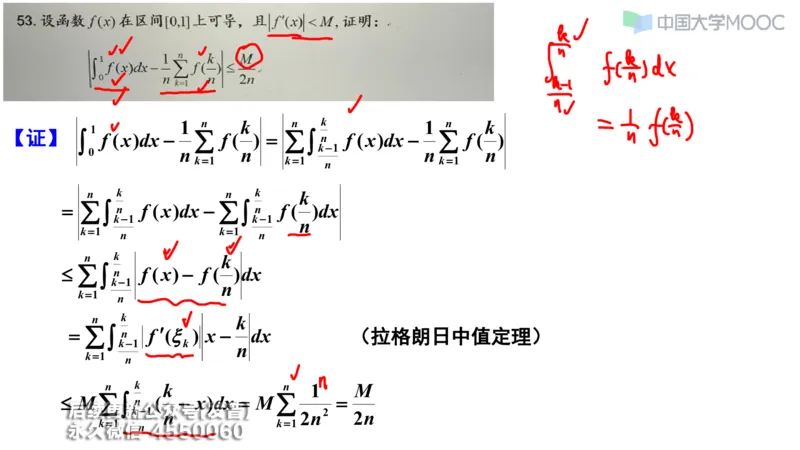 53. 设函数 f(x) 在区间[0,1]上可导，且|f′(x)| < M, 证明：
|∫₀¹ f(x)dx − 1/n ∑_{k=1}^{n} f(k/n)| ≤ M/2n .
中国大学MOOC
∫_{(k−1)/n}^{k/n} f(k/n)dx
= 1/n f(k/n)
【证】 |∫₀¹ f(x)dx − 1/n ∑_{k=1}^{n} f(k/n)| = |∑_{k=1}^{n} ∫_{(k−1)/n}^{k/n} f(x)dx − 1/n ∑_{k=1}^{n} f(k/n)|
= |∑_{k=1}^{n} ∫_{(k−1)/n}^{k/n} f(x)dx − ∑_{k=1}^{n} ∫_{(k−1)/n}^{k/n} f(k/n)dx|
≤ ∑_{k=1}^{n} ∫_{(k−1)/n}^{k/n} |f(x) − f(k/n)|dx
= ∑_{k=1}^{n} ∫_{(k−1)/n}^{k/n} |f′(ξₖ)| |x − k/n| dx （拉格朗日中值定理）
≤ M ∑_{k=1}^{n} ∫_{(k−1)/n}^{k/n} (k/n − x)dx = M ∑_{k=1}^{n} 1/2n² = M/2n
n
永久微信